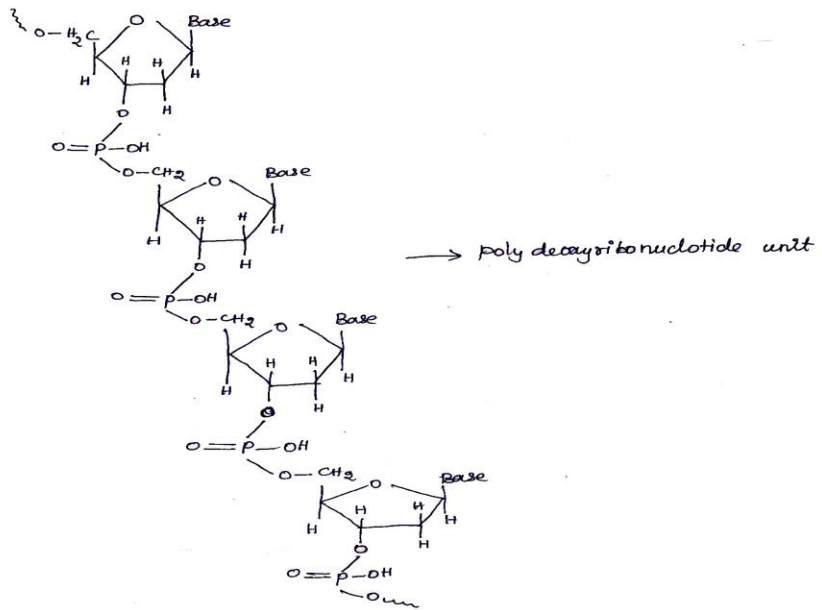 O Base
O-H₂C
H H H
H H
O
O=P-OH
O-CH₂ O Base
H H H
H H
O
→ poly deoxyribonuclotide unit
O=P-OH
O-CH₂ O Base
H H H
H H
O
O=P-OH
O-CH₂ O Base
H H H
H H
O
O=P-OH
O